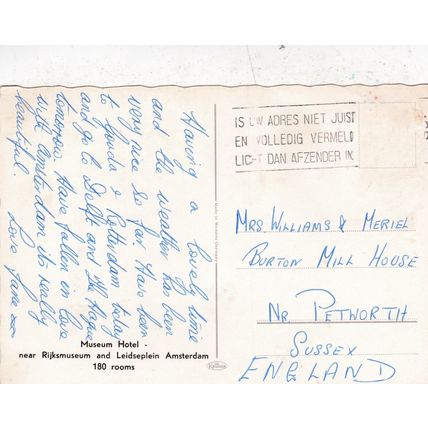 Having a lovely time
and the weather has been
very nice so far. Have been
to Gouda & Rotterdam today
and go to Delft and The Hague
tomorrow. Have fallen in love
with Amsterdam its really
beautiful. Love
Museum Hotel -
near Rijksmuseum and Leidseplein Amsterdam
180 rooms
Made in Western Germany
IS UW ADRES NIET JUIST
EN VOLLEDIG VERMELD
LICHT DAN AFZENDER IN
MRS. WILLIAMS & MERIEL
BURTON MILL HOUSE
NR. PETWORTH
SUSSEX
ENGLAND